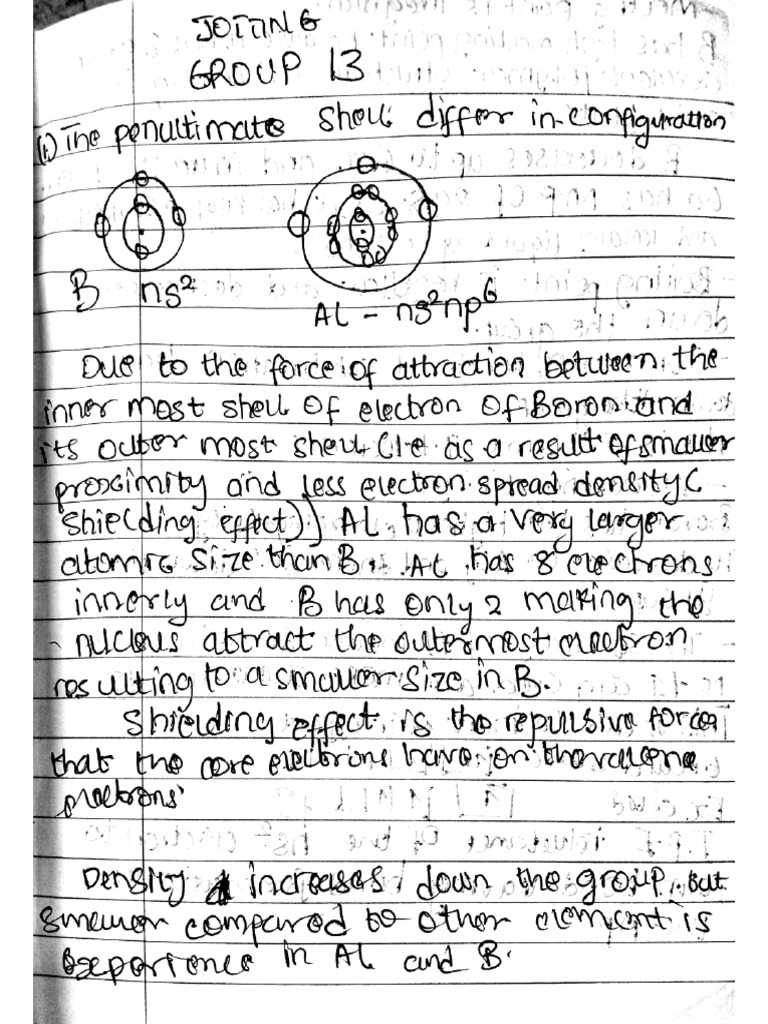 JOTTING
GROUP 13
(1) The penultimate shell differ in configuration
B ns²
AL - ns²np⁶
Due to the force of attraction between the
inner most shell of electron of Boron and
its outer most shell (i.e as a result of smaller
proximity and less electron spread density (
shielding effect)) AL has a very larger
atomic size than B. AL has 8 electrons
innerly and B has only 2 making the
nucleus attract the outermost electron
resulting to a smaller size in B.
Shielding effect is the repulsive force
that the core electrons have on the valence
electrons
Density increases down the group, but
smaller compared to other element is
experience in AL and B.